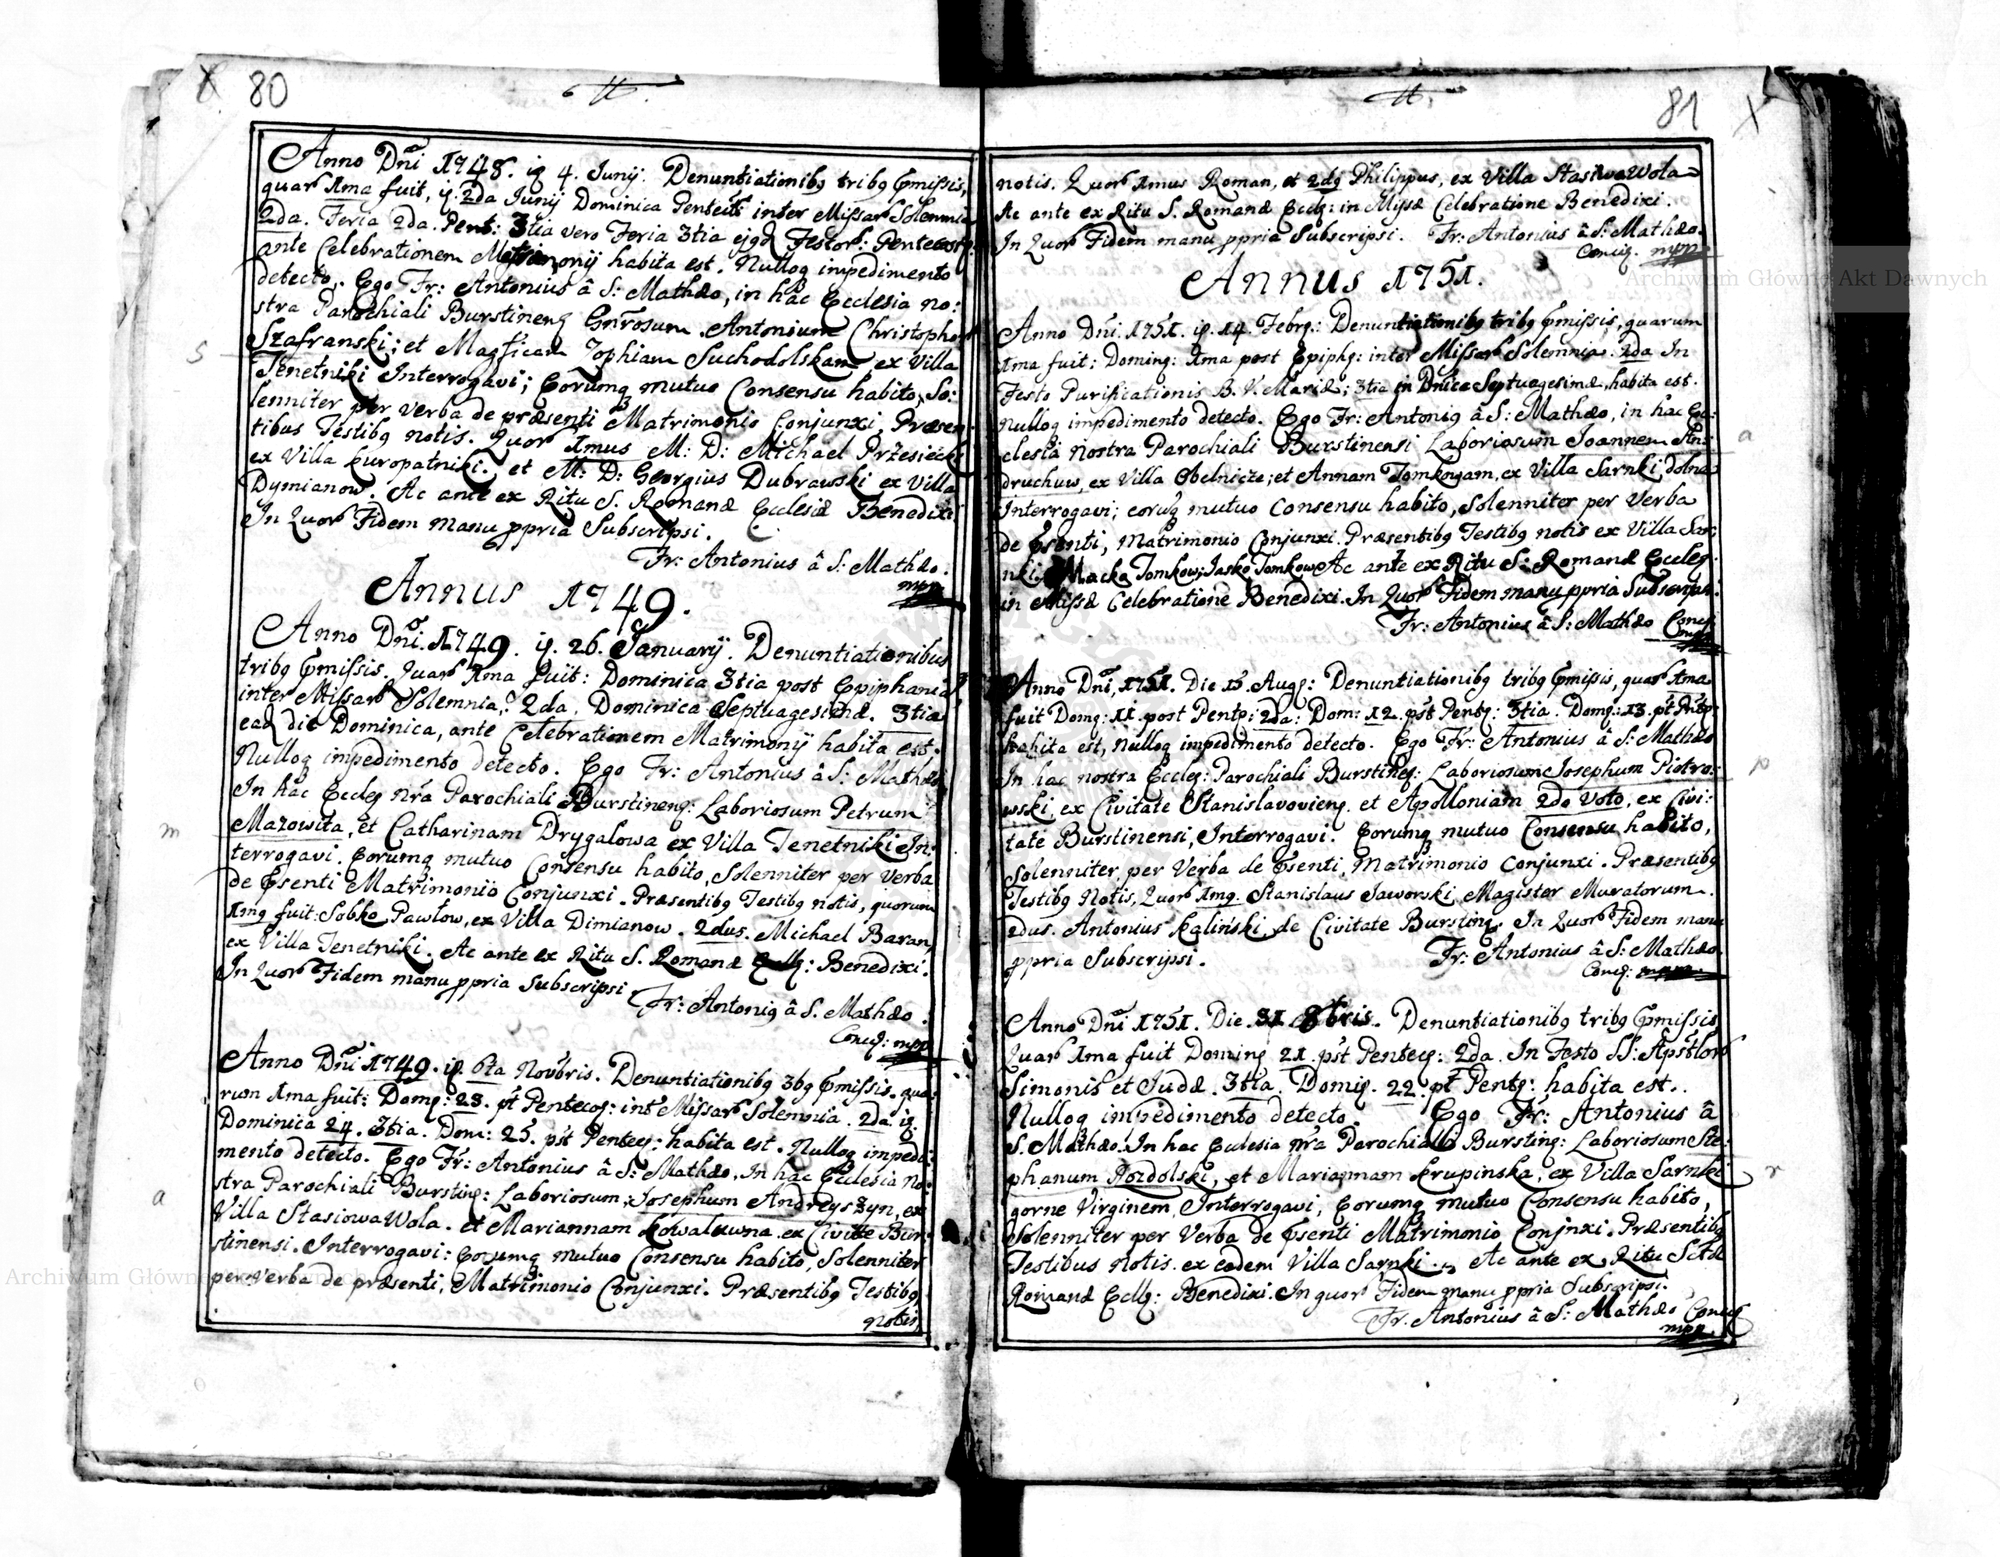 80
Anno Dñi 1748. ig 4. Junij. Denuntiationibg tribg Pmissis,
quar Ima fuit, ig. 2da Junij Dominica Pentects inter Missar Solemnia
2da. Feria 2da. Pent: 3tia vero Feria 3tia ejgd Festor: Pentecostg:
ante Celebrationem Matrimonij habita est. Nulloq impedimento
detecto. Ego Fr: Antonius â S: Mathæo, in hâc Ecclesia no:
stra Parochiali Burstineng Gnrosum Antonium Christophor
Szafranski; et Magficam Zophiam Suchodolskam ex Villa
Tenetniki Interrogavi; Eorumq mutuo Consensu habito, So:
lenniter per verba de præsenti Matrimonio Conjunxi, Præsen:
tibus Testibg notis. Quor Imus M: D: Michael Przesiecki
ex Villa Kuropatniki. et M: D: Georgius Dubrawski ex Villa
Dymianow. Ac ante ex Ritu S. Romanæ Ecclesiæ Benedixi.
In Quor Fidem manu ppria Subscripsi.
Fr: Antonius â S: Mathæo.
mpp
Annus 1749.
Anno Dñi. 1749. ig. 26. Januarij. Denuntiationibus
tribg Pmissis. Quar Ima fuit: Dominica 3tia post Epiphania
inter Missar Solemnia, 2da. Dominica Septuagesimæ. 3tia
eadq die Dominica, ante Celebrationem Matrimonij habita est.
Nulloq impedimento detecto. Ego Fr: Antonius â S: Mathæo
In hâc Eccleg nr̃a Parochiali Burstineng: Laboriosum Petrum
Mazowita, et Catharinam Drygalowa ex Villa Tenetniki In:
terrogavi. Eorumq mutuo Consensu habito, Solenniter per Verba
de Psenti Matrimonio Conjunxi. Præsentibg Testibg notis, quorum
Img fuit: Sobko Pawlow, ex Villa Dimianow. 2dus. Michael Baran,
ex Villa Tenetniki. Ac ante ex Ritu S. Romanæ Eccllg: Benedixi.
In Quor Fidem manu ppria Subscripsi
Fr: Antonig â S. Mathæo.
Concg: mpp
Anno Dñi 1749. ig 6ta Novbris. Denuntiationibg 3bg Pmissis. qua:
rum Ima fuit: Domg: 23. pt Pentecog: int Missar Solemnia. 2da. ig.
Dominica 24. 3tia. Dom: 25. pst Penteg: habita est. Nulloq impedi:
mento detecto. Ego Fr: Antonius â S: Mathæo. In hâc Ecclesia no:
stra Parochiali Bursting: Laboriosum, Josephum Andreyszyn, ex
Villa Stasiowa Wola. et Mariannam Kowaluwna ex Civitte Bur:
stinensi. Interrogavi: Eorumq mutuo Consensu habito, Solenniter
per Verba de præsenti, Matrimonio Conjunxi. Præsentibg Testibg
notis
S
m
a
81
notis. Quor Imus Roman, et 2dg Philippus, ex Villa Stasiwa Wola
Ac ante ex Ritu S. Romanæ Ecclg: in Missæ Celebratione Benedixi.
In Quor Fidem manu ppria Subscripsi. Fr: Antonius â S: Mathæo.
Concig. mpp
Annus 1751.
Anno Dñi: 1751. ig. 14. Febrg: Denuntiationibg tribg Pmissis, quarum
Ima fuit: Doming: Ima post Epiphg: inter Missar Solemnia. 2da In
Festo Purificationis B. V. Mariæ; 3tia in Dnica Septuagesimæ, habita est.
Nulloq impedimento detecto. Ego Fr: Antonig â S: Mathæo, in hac Ec:
clesia nostra Parochiali Burstinensi Laboriosum Joannem An:
druchuw, ex Villa Obelnicze; et Annam Tomkowam, ex Villa Sarnki dolne
Interrogavi; eorumq mutuo Consensu habito, Solenniter per Verba
de Psenti, Matrimonio Conjunxi. Præsentibg Testibg notis ex Villa Sar:
nki, Macka Tomkow; Jasko Tomkow Ac ante ex Ritu S: Romanæ Eccleg:
in Missæ Celebratione Benedixi. In Quor Fidem manu ppria Subscripsi:
Fr: Antonius â S: Mathæo Concg:
mpp
Anno Dñi, 1751. Die 15. Augg: Denuntiationibg tribg Pmissis, quar Ima
fuit Domg: 11. post Pentg: 2da: Dom: 12. pst Pentg: 3tia. Domg: 13. pt Pntg:
habita est, Nulloq impedimento detecto. Ego Fr: Antonius â S: Mathæo
In hac nostra Eccleg: Parochiali Bursting: Laboriosum Josephum Piotro:
wski, ex Civitate Stanislavovieng. et Apolloniam 2do voto, ex Civi:
tate Burstinensi, Interrogavi. Eorumq mutuo Consensu habito,
Solenniter, per Verba de Psenti, Matrimonio Conjunxi. Præsentibg
Testibg Notis, Quor Img. Stanislaus Jaworski, Magister Muratorum.
2dus. Antonius Kaliński, de Civitate Bursting. In Quor Fidem manu
ppria Subscripsi. Fr: Antonius â S: Mathæo.
Concg: mpp
Anno Dñi 1751. Die. 31. 8bris. Denuntiationibg tribg Pmissis
Quar Ima fuit Doming 21. pst Penteg: 2da. In Festo SS: Apstlor
Simonis et Judæ. 3tia. Domig. 22. pt Pentg: habita est..
Nulloq impedimento detecto. Ego Fr: Antonius â
S. Mathæo. In hac Ecclesia nr̃a Parochiali Bursting: Laboriosum Ste:
phanum Rozdolski, et Mariannam Krupinska, ex Villa Sarnki
gorne Virginem, Interrogavi, Eorumq mutuo Consensu habito,
Solenniter per Verba de Psenti Matrimonio Conjnxi. Præsentibg
Testibus notis. ex eadem Villa Sarnki. Ac ante ex Ritu Sctæ
Romanæ Ecllg: Benedixi. In quor Fidem manu ppria Subscripsi.
Fr. Antonius â S: Mathæo Concig
mpp
a
p
r
Archiwum Główne Akt Dawnych
Archiwum Główne Akt Dawnych